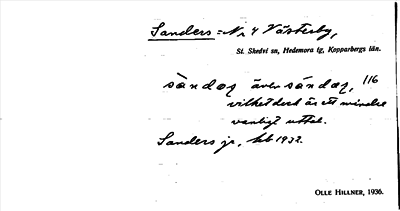 Sanders = Nr 4 Västerby,
St. Skedvi sn, Hedemora tg, Kopparbergs län.
sàndaz även sándaz, 116
vilket dock är ett mindre
vanligt uttal.
Sanders jr, kb 1932.
OLLE HILLNER, 1936.